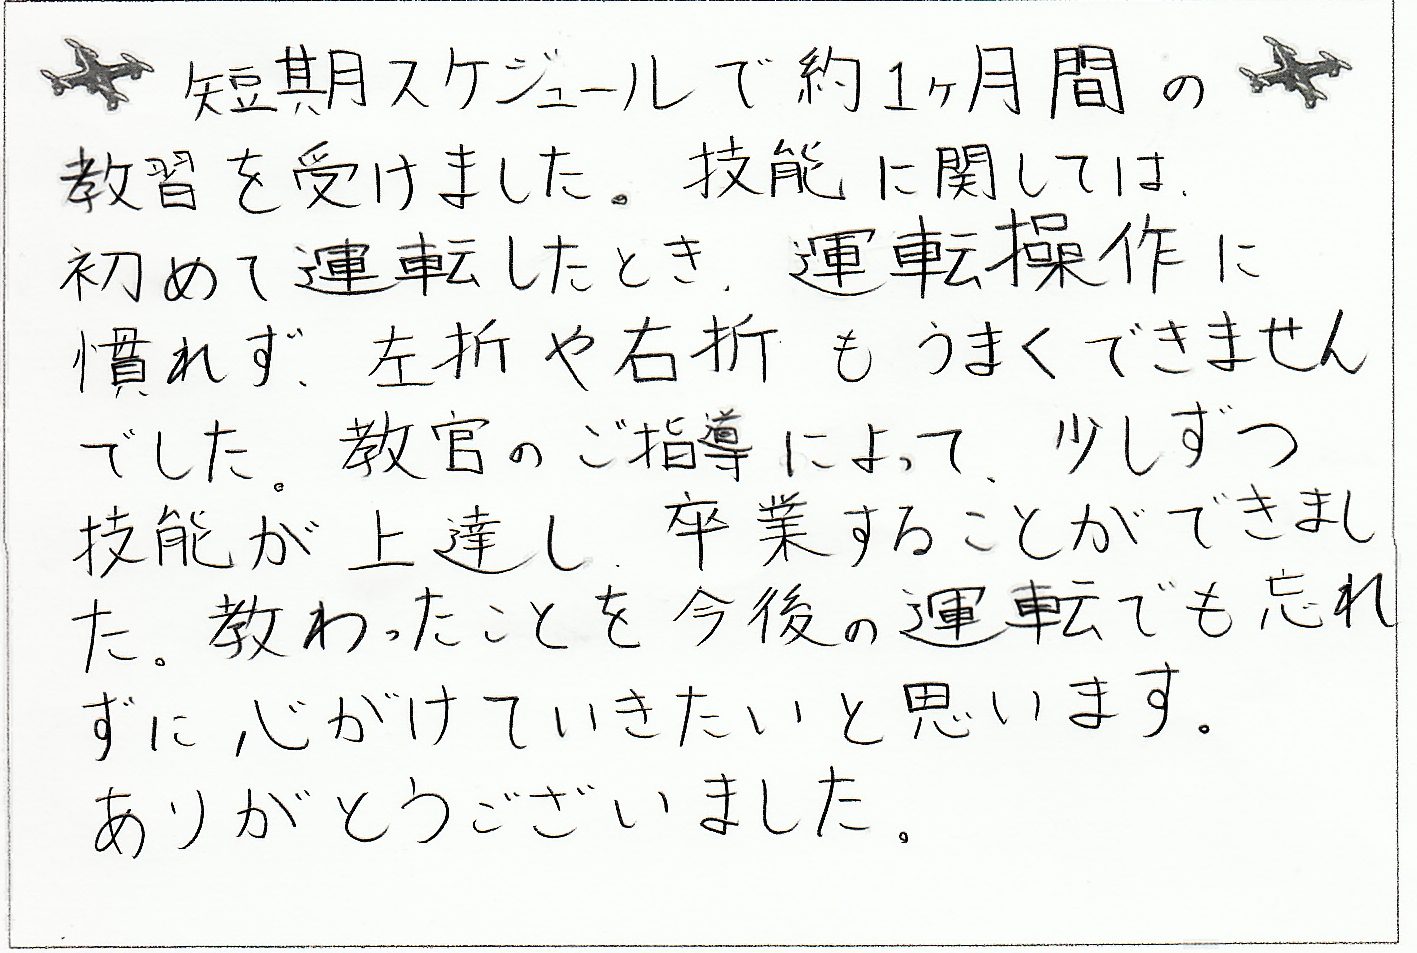 短期スケジュールで約1ヶ月間の
教習を受けました。技能に関しては、
初めて運転したとき、運転操作に
慣れず、左折や右折もうまくできません
でした。教官のご指導によって、少しずつ
技能が上達し、卒業することができまし
た。教わったことを今後の運転でも忘れ
ずに心がけていきたいと思います。
ありがとうございました。